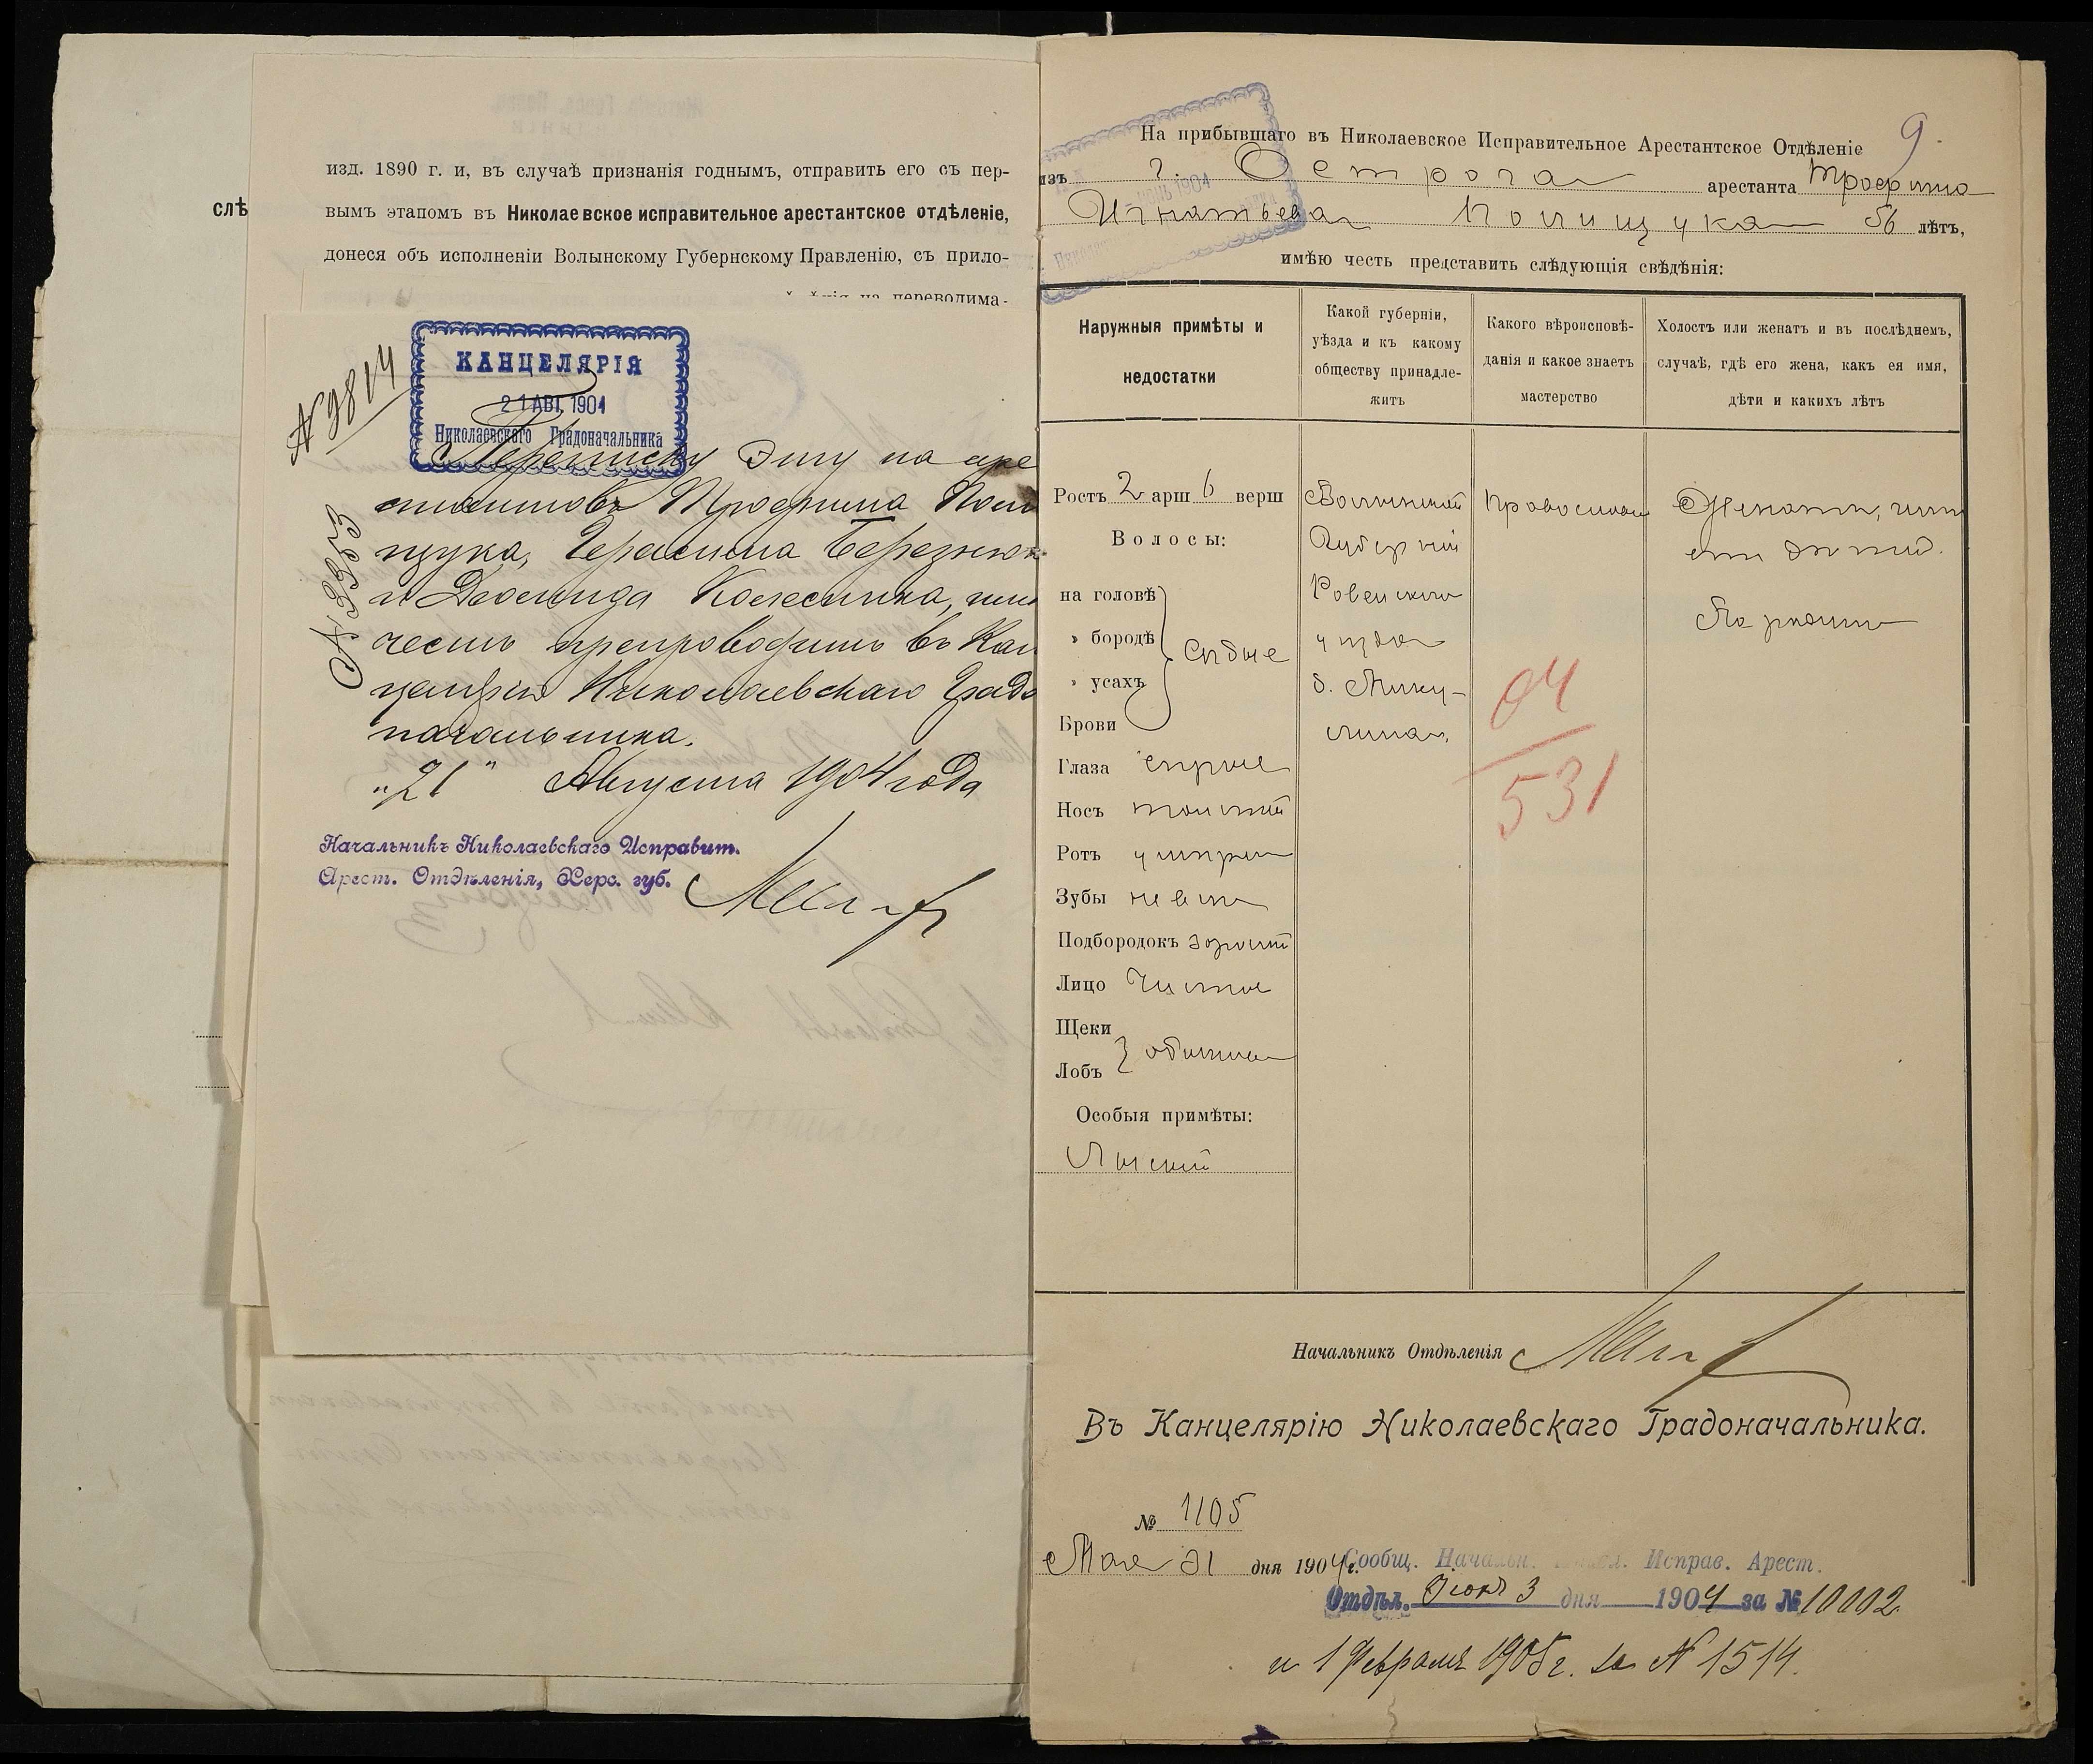 слѣ
изд. 1890 г. и, въ случаѣ признанія годнымъ, отправить его съ пер-
вымъ этапомъ въ Николаевское исправительное арестантское отдѣленіе,
донеся объ исполненіи Волынскому Губернскому Правленію, съ прило-
на переводима-
№ 9814
КАНЦЕЛЯРІЯ
21 АВГ. 1904
Николаевского Градоначальника
№ 3353
Переписку эту на аре
стантовъ Трофима Поли
щука, Герасима Березюк
и Диомида Колесника, имѣю
честь препроводить въ Кан
целярію Николаевскаго Градо
начальника.
„21" Августа 1904 года
Начальникъ Николаевскаго Исправит.
Арест. Отдѣленія, Херс. губ.
9.
На прибывшаго въ Николаевское Исправительное Арестантское Отдѣленіе
изъ г. Острога арестанта Трофима
Игнатьева Полищука 56 лѣтъ,
имѣю честь представить слѣдующія свѣдѣнія:
1904
Наружныя примѣты и
недостатки
Какой губерніи,
уѣзда и къ какому
обществу принадле-
житъ
Какого вѣроисповѣ-
данія и какое знаетъ
мастерство
Холостъ или женатъ и въ послѣднемъ,
случаѣ, гдѣ его жена, какъ ея имя,
дѣти и какихъ лѣтъ
Ростъ 2 арш 6 верш
Волосы:
на головѣ
» бородѣ
» усахъ
Брови
сѣдые
Глаза сѣрые
Носъ толстый
Ротъ умѣрен
Зубы не всѣ
Подбородокъ зарост
Лицо Чистое
Щеки
Лобъ
обыкнов
Особыя примѣты:
Лысый
Волынской
Губерніи
Ровенскаго
уѣзда
д. Мику-
лина,
Православн
04
531
Женатъ, имѣ
етъ дѣтей.
Начальникъ Отдѣленія
Въ Канцелярію Николаевскаго Градоначальника.
№ 1105
Мая 31 дня 1904 г.
Сообщ. Начальн. Исправ. Арест.
Отдѣл. Іюня 3 дня 1904 за № 10002
и 1 Февраля 1905 г. за № 1514.